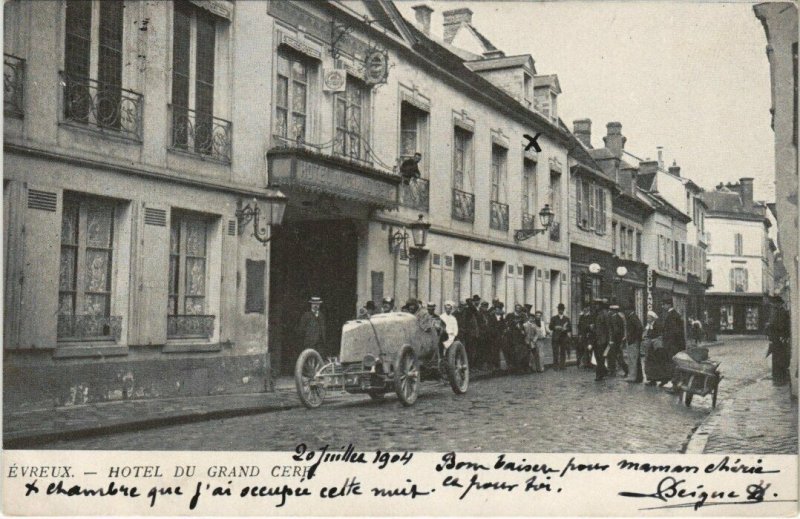 20 Juillet 1904
ÉVREUX. — HOTEL DU GRAND CERF
x chambre que j'ai occupée cette nuit.
Bon baiser pour maman chérie
et pour toi.